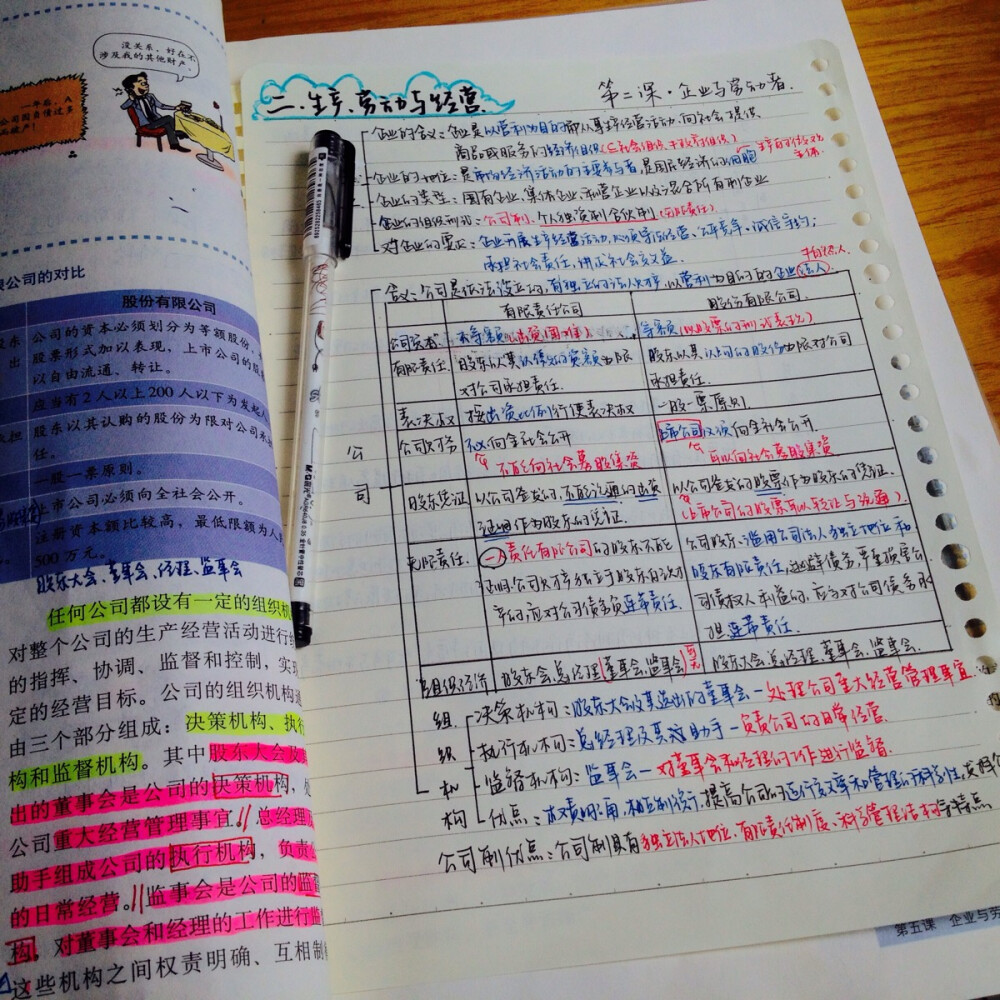 没关系，好在不
涉及我的其他财产。
一年后，A
公司因负债过多
而破产！
限公司的对比
股份有限公司
公司的资本必须划分为等额股份，
股票形式加以表现，上市公司的股
以自由流通、转让。
应当有2人以上200人以下为发起人
股东以其认购的股份为限对公司承
任。
一股一票原则。
上市公司必须向全社会公开。
注册资本额比较高，最低限额为人
500万元。
股东大会、董事会、经理、监事会
任何公司都设有一定的组织机
对整个公司的生产经营活动进行
的指挥、协调、监督和控制，实现
定的经营目标。公司的组织机构通
由三个部分组成：决策机构、执行
构和监督机构。其中股东大会及
出的董事会是公司的决策机构，处
公司重大经营管理事宜。总经理
助手组成公司的执行机构，负责公
的日常经营。监事会是公司的监
构，对董事会和经理的工作进行监
这些机构之间权责明确、互相制
二.生产、劳动与经营.
第二课·企业与劳动者.
企业的含义：企业是以营利为目的而从事经营活动，向社会提供
商品或服务的经济组织
企业的地位：是市场经济活动的主要参与者，是国民经济的细胞
主体.
企业的类型：国有企业，集体企业，私营企业以及混合所有制企业
企业的组织形式：公司制、个人独资制合伙制(无限责任)
对企业的要求：企业开展生产经营活动，必须守法经营、公平竞争、诚信守约；
承担社会责任，讲求社会效益.
≠自然人
含义：公司是依法设立的，有独立的法人财产，以营利为目的的企业法人
公司
有限责任公司
股份有限公司.
公司资本
不等额
等额(以股票的形式表现)
有限责任.
股东以其认缴的出资额为限
对公司承担责任.
股东以其认购的股份为限对公司
承担责任.
表决权
按出资比例行使表决权
一股一票原则
公司财务
不必向全社会公开
不能向社会募股集资
上市公司必须向全社会公开.
可以向社会募股集资
股东凭证
以公司签发的，不能流通的出资
证明作为股东的凭证.
以公司签发的股票作为股东的凭证.
(上市公司的股票可以转让与流通).
无限责任.
一人责任有限公司的股东不能
证明公司财产独立于股东自己财
产的，应对公司债务负连带责任.
公司股东滥用公司法人独立地位和
股东有限责任，逃避债务，严重损害公
司债权人利益的，应当对公司债务承
担连带责任.
股东会、总经理(董事会、监事会)
股东大会、总经理、董事会、监事会.
组织机构
决策机构：股东大会及其选出的董事会—处理公司重大经营管理事宜
执行机构：总经理及其助手—负责公司的日常经营.
监督机构：监事会—对董事会和经理的工作进行监督.
优点：权责明确，相互制衡，提高公司的运行效率和管理的科学性
公司制优点：公司制具有独立法人地位、有限责任制度、科学管理结构等特点
第五课 企业与劳